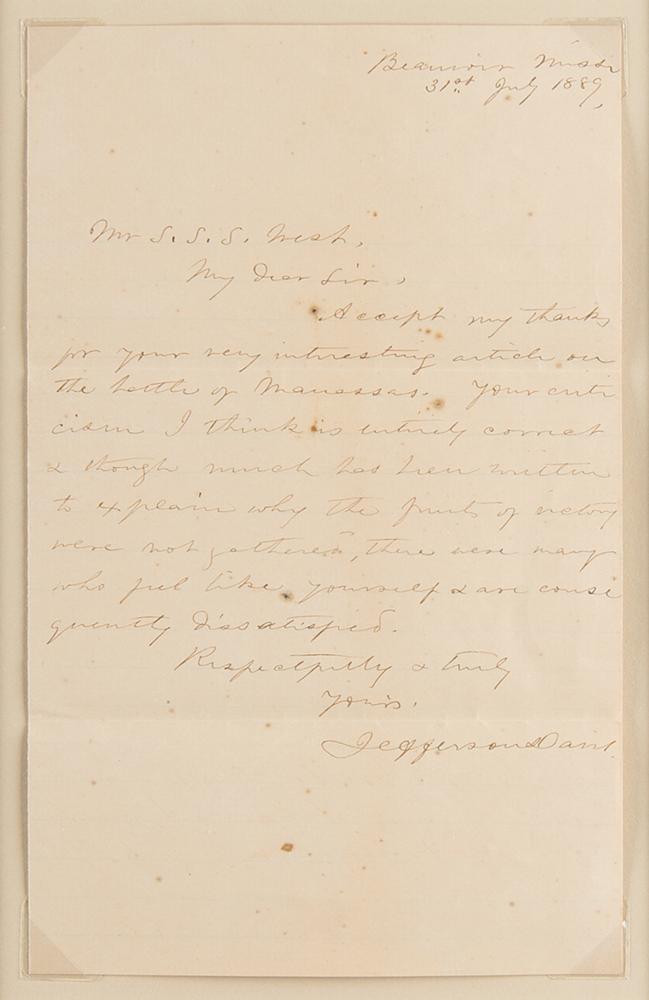 Beauvoir Missi
31st July 1889,
Mr S. S. S. West,
My dear Sir,
Accept my thanks
for your very interesting article on
the battle of Manassas. Your criti
cism I think is entirely correct
& though much has been written
to explain why the fruits of victory
were not gathered, there were many
who feel like yourself & are conse
quently dissatisfied.
Respectfully & truly
Yours.
Jefferson Davis